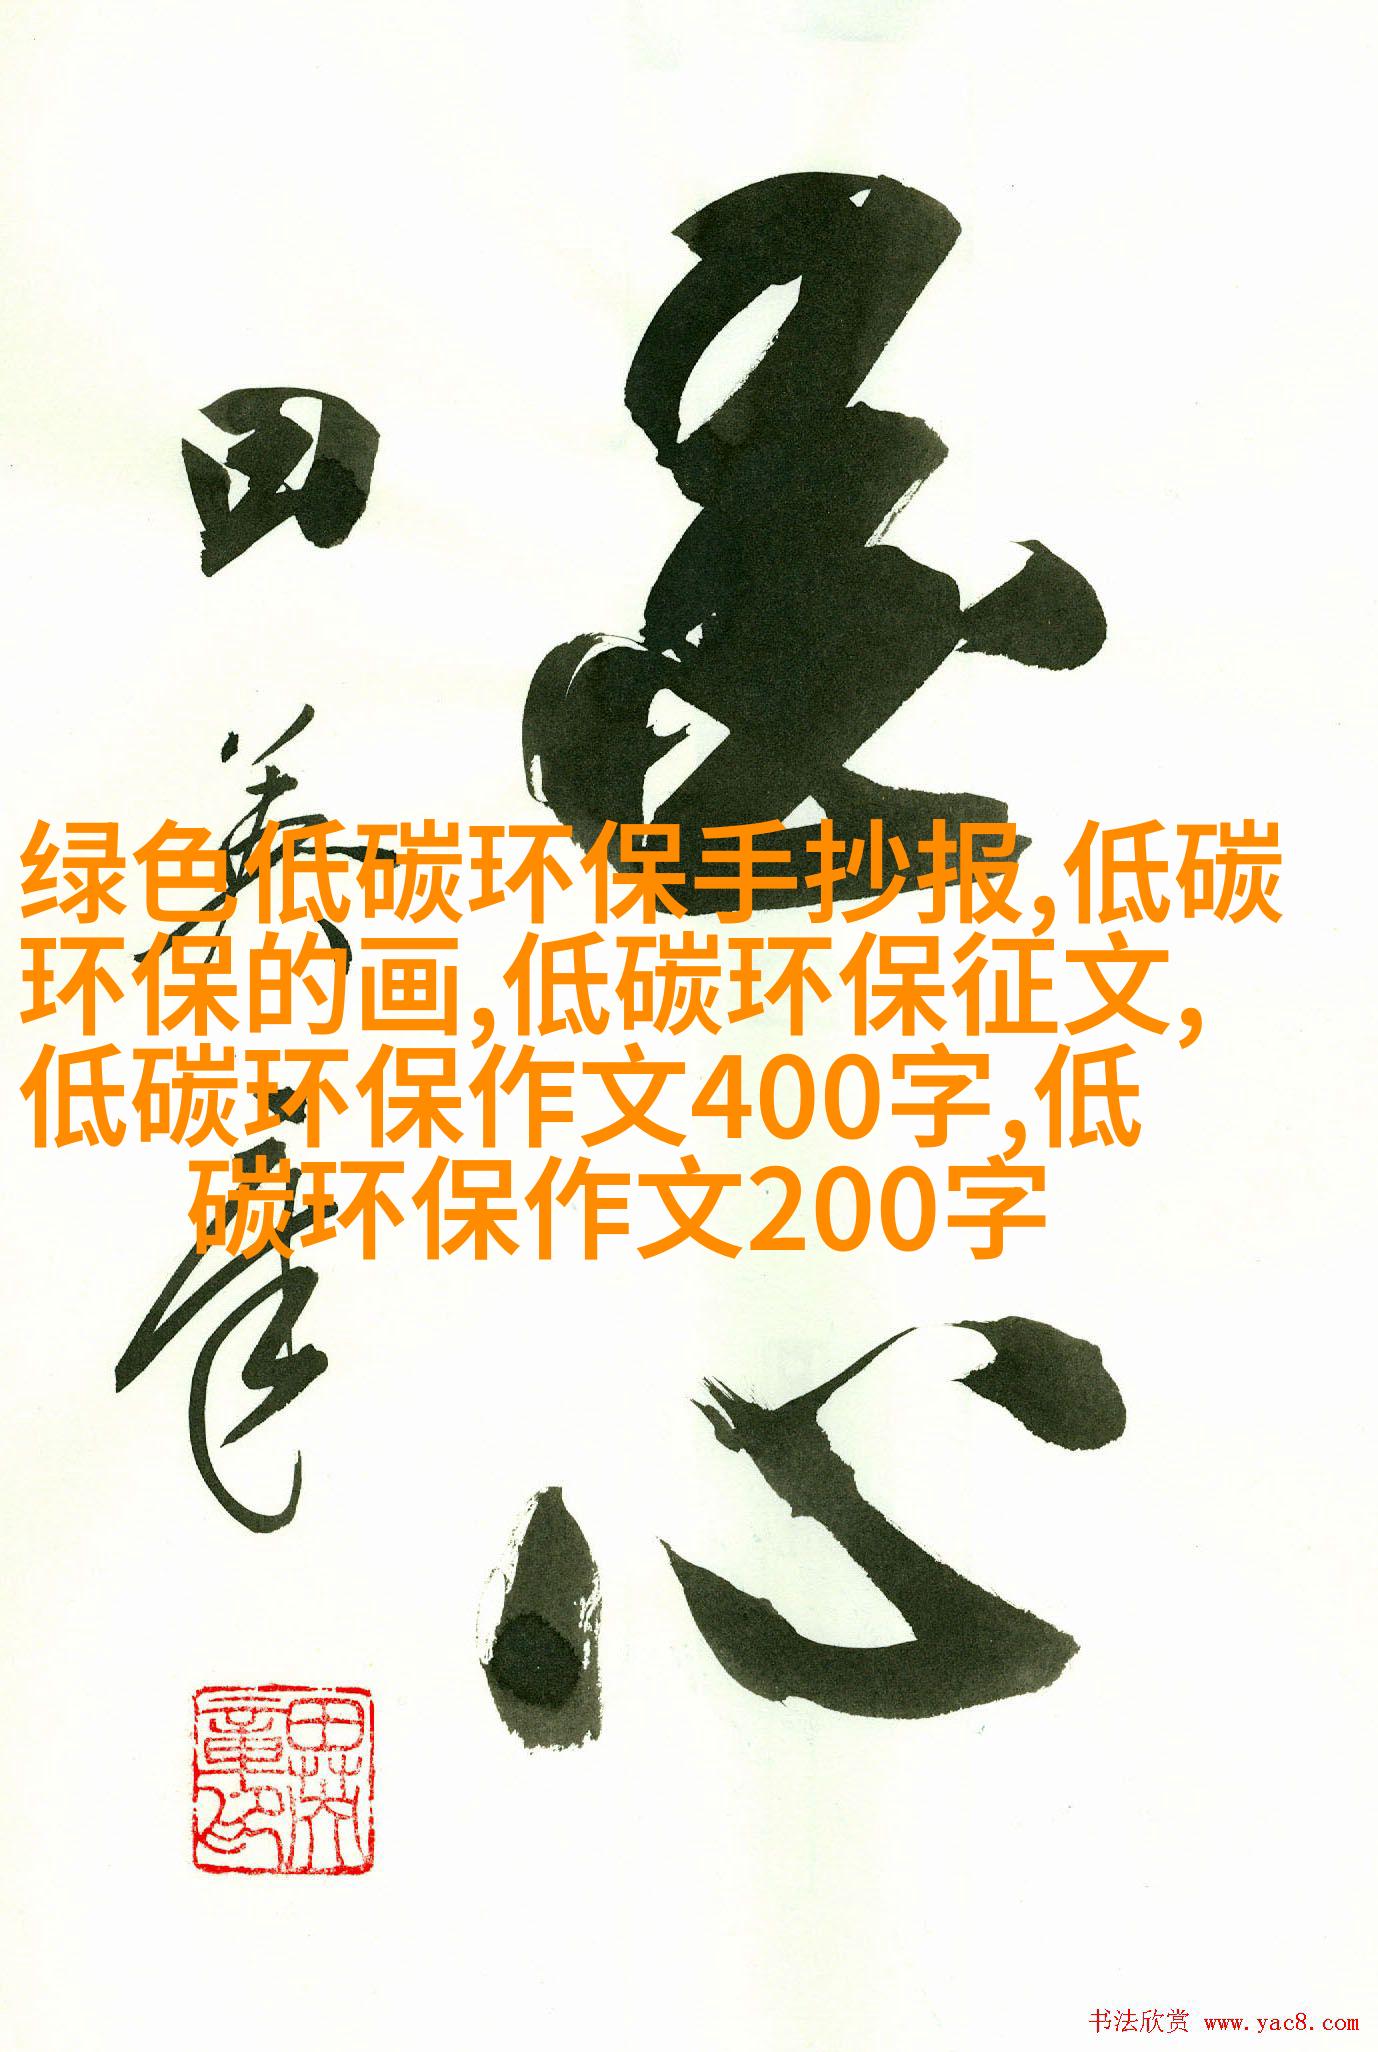 绿色低碳环保手抄报,低碳
环保的画,低碳环保征文,
低碳环保作文400字,低
碳环保作文200字
心
田英章
书法欣赏 www.yac8.com